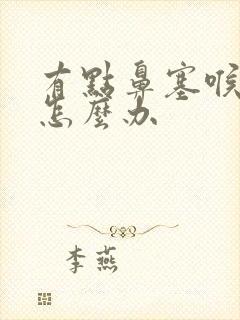 有點鼻塞喉
怎麼办
李燕